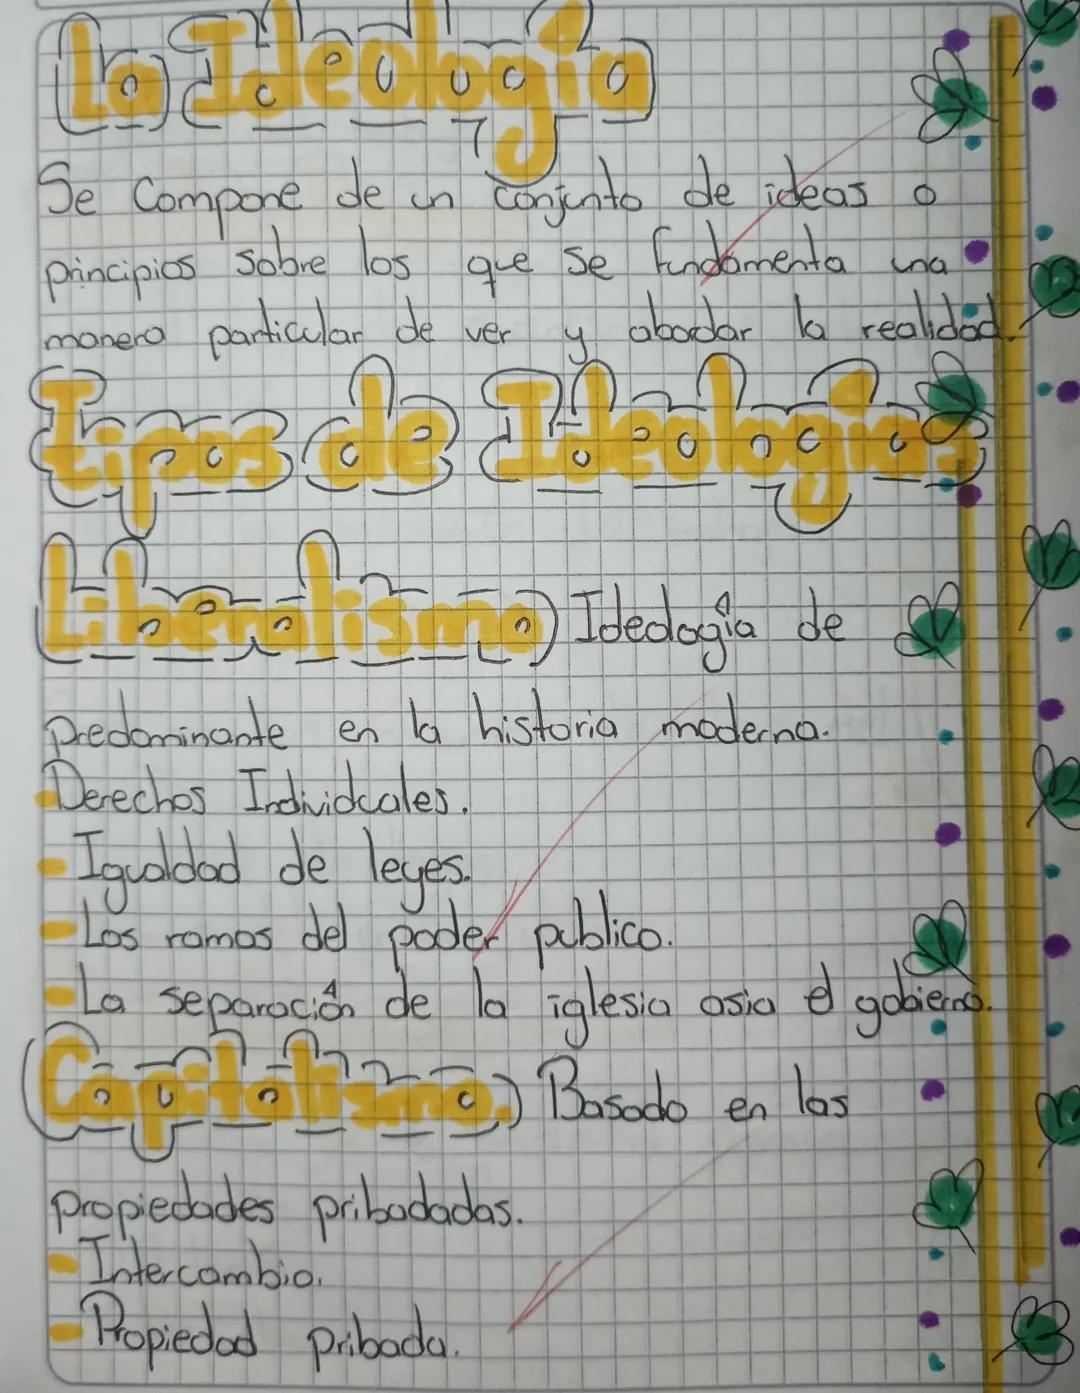 La Ideología
Se Compone de un conjunto de ideas o
principios sobre los que se fundamenta una
manera particular de ver y abordar la realidad.
Tipos de Ideologías
Liberalismo Ideología de
predominante en la historia moderna.
- Derechos Individuales.
- Igualdad de leyes.
- Los ramas del poder público.
- La separación de la iglesia asia el gobierno.
Capitalismo. Basado en las
propiedades pribadadas.
- Intercambio.
- Propiedad pribada.